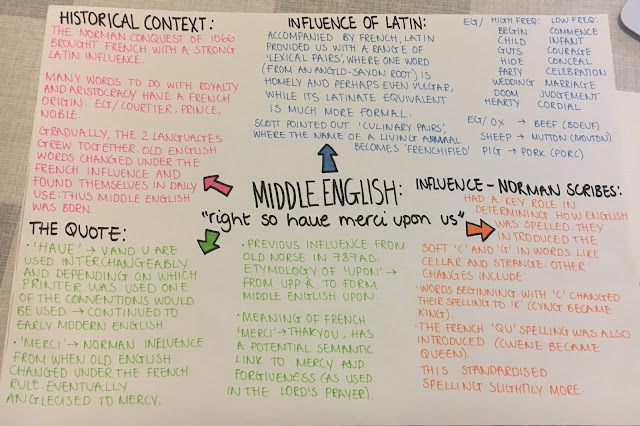 HISTORICAL CONTEXT:
THE NORMAN CONQUEST OF 1066
BROUGHT FRENCH WITH A STRONG
LATIN INFLUENCE.
MANY WORDS TO DO WITH ROYALTY
AND ARISTOCRACY HAVE A FRENCH
ORIGIN. EG/ COURTIER, PRINCE,
NOBLE.
GRADUALLY, THE 2 LANGUAGES
GREW TOGETHER. OLD ENGLISH
WORDS CHANGED UNDER THE
FRENCH INFLUENCE AND
FOUND THEMSELVES IN DAILY
USE: THUS MIDDLE ENGLISH
WAS BORN.
INFLUENCE OF LATIN:
ACCOMPANIED BY FRENCH, LATIN
PROVIDED US WITH A RANGE OF
'LEXICAL PAIRS', WHERE ONE WORD
(FROM AN ANGLO-SAXON ROOT) IS
HOMELY AND PERHAPS EVEN VULGAR,
WHILE ITS LATINATE EQUIVALENT
IS MUCH MORE FORMAL.
SCOTT POINTED OUT 'CULINARY PAIRS',
WHERE THE NAME OF A LIVING ANIMAL
BECOMES 'FRENCHIFIED'
EG/ HIGH FREQ: LOW FREQ:
BEGIN COMMENCE
CHILD INFANT
GUTS COURAGE
HIDE CONCEAL
PARTY CELEBRATION
WEDDING MARRIAGE
DOOM JUDGEMENT
HEARTY CORDIAL
EG/ OX → BEEF (BOEUF)
SHEEP → MUTTON (MOUTON)
PIG → PORK (PORC)
MIDDLE ENGLISH:
"right so haue merci upon us"
THE QUOTE:
• 'HAUE' → V AND U ARE
USED INTERCHANGEABLY
AND DEPENDING ON WHICH
PRINTER WAS USED ONE
OF THE CONVENTIONS WOULD
BE USED → CONTINUED TO
EARLY MODERN ENGLISH.
• 'MERCI' → NORMAN INFLUENCE
FROM WHEN OLD ENGLISH
CHANGED UNDER THE FRENCH
RULE. EVENTUALLY
ANGLECISED TO MERCY.
• PREVIOUS INFLUENCE FROM
OLD NORSE IN 787AD.
ETYMOLOGY OF 'UPON' →
FROM UPP Á TO FORM
MIDDLE ENGLISH UPON.
• MEANING OF FRENCH
'MERCI' → THANKYOU, HAS
A POTENTIAL SEMANTIC
LINK TO MERCY AND
FORGIVENESS (AS USED
IN THE LORD'S PRAYER).
INFLUENCE - NORMAN SCRIBES:
HAD A KEY ROLE IN
DETERMINING HOW ENGLISH
WAS SPELLED. THEY
INTRODUCED THE
SOFT 'C' AND 'G' IN WORDS LIKE
CELLAR AND STRANGE. OTHER
CHANGES INCLUDE:
• WORDS BEGINNING WITH 'C' CHANGED
THEIR SPELLING TO 'K' (CYNG BECAME
KING).
• THE FRENCH 'QU' SPELLING WAS ALSO
INTRODUCED (CWENE BECAME
QUEEN).
THIS STANDARDISED
SPELLING SLIGHTLY MORE.